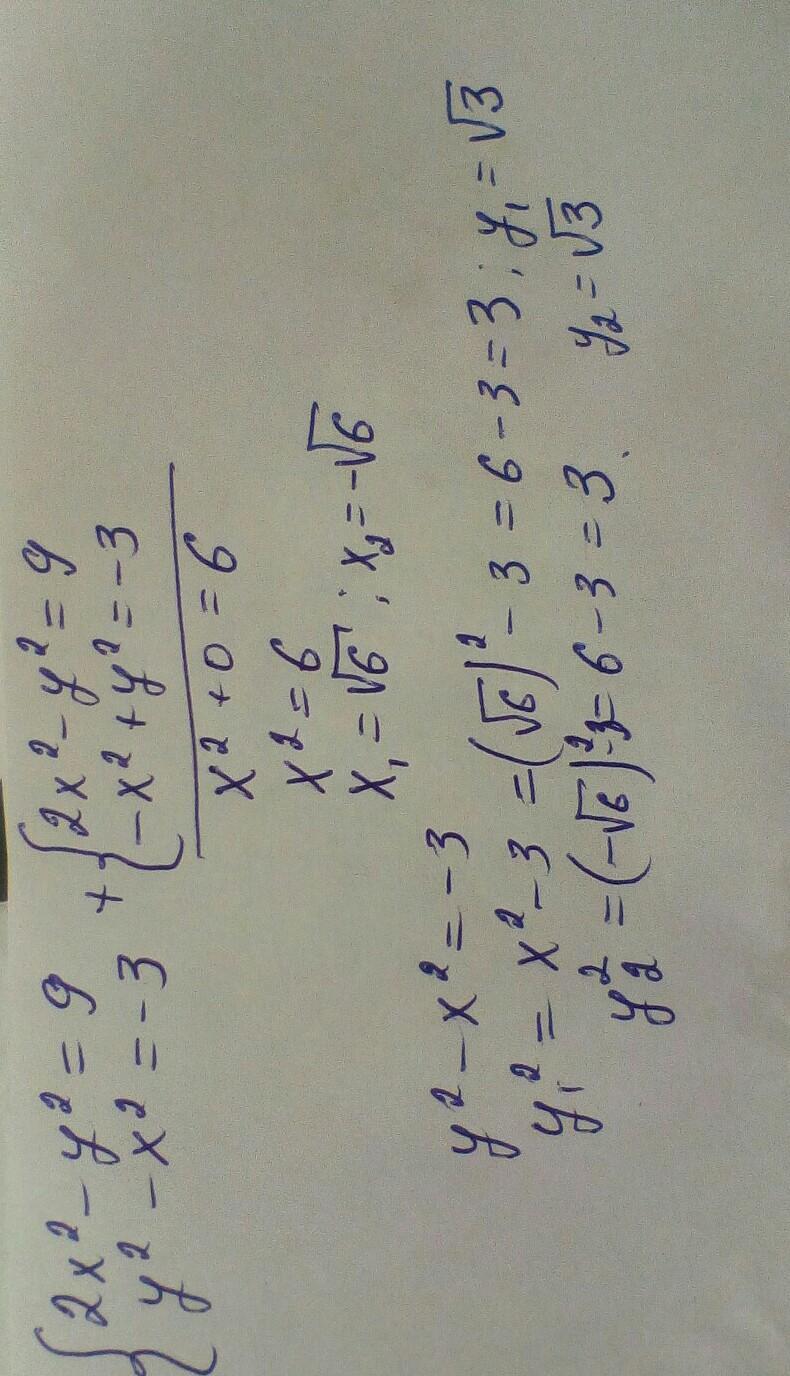 {2x² - y² = 9
y² - x² = -3
+ {2x² - y² = 9
-x² + y² = -3
x² + 0 = 6
x² = 6
x₁ = √6 ; x₂ = -√6
y² - x² = -3
y₁² = x² - 3 = (√6)² - 3 = 6 - 3 = 3 ; y₁ = √3
y₂² = (-√6)² - 3 = 6 - 3 = 3. y₂ = √3